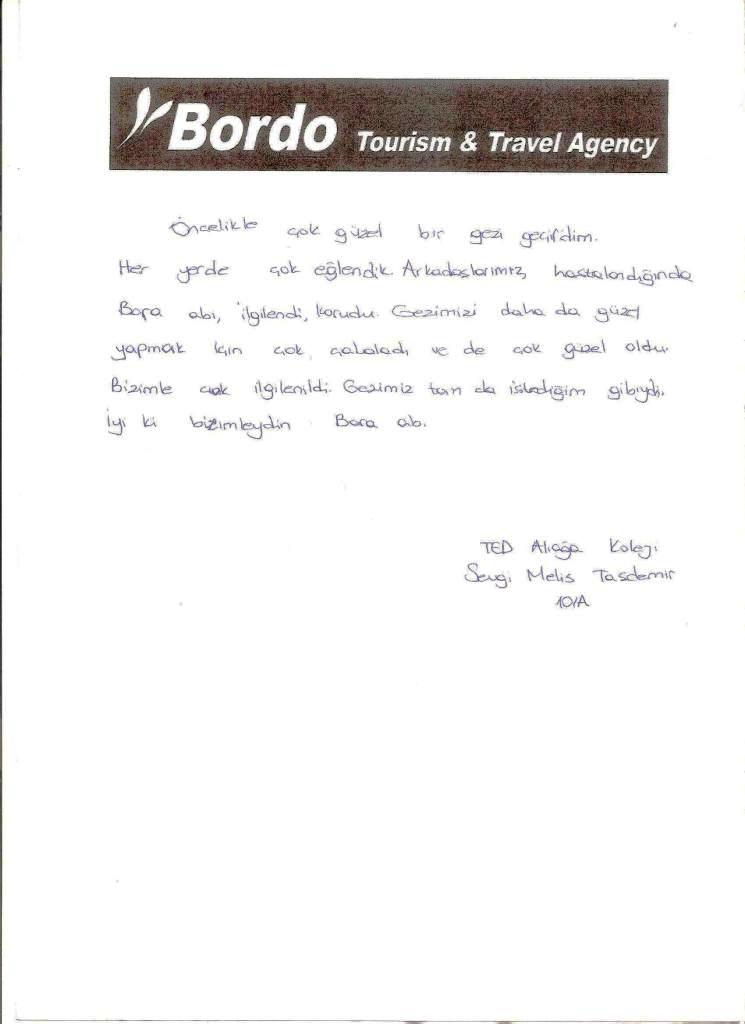 Bordo Tourism & Travel Agency
Öncelikle çok güzel bir gezi geçirdim.
Her yerde çok eğlendik. Arkadaşlarımız hastalandığında
Bora abi, ilgilendi, korudu. Gezimizi daha da güzel
yapmak için çok çabaladı ve de çok güzel oldu.
Bizimle çok ilgilenildi. Gezimiz tam da istediğim gibiydi.
İyi ki bizimleydin Bora abi.
TED Aliağa Koleji
Sevgi Melis Tasdemir
10/A